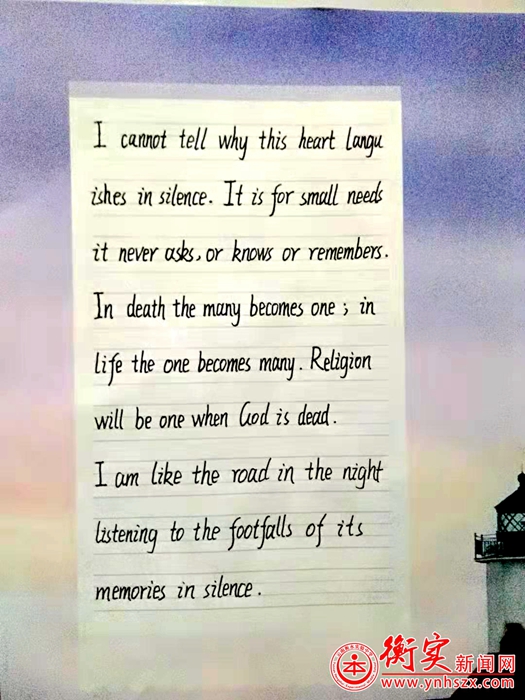 I cannot tell why this heart langu
ishes in silence. It is for small needs
it never asks, or knows or remembers.
In death the many becomes one; in
life the one becomes many. Religion
will be one when God is dead.
I am like the road in the night
listening to the footfalls of its
memories in silence.
衡实新闻网
www.ynhszx.com